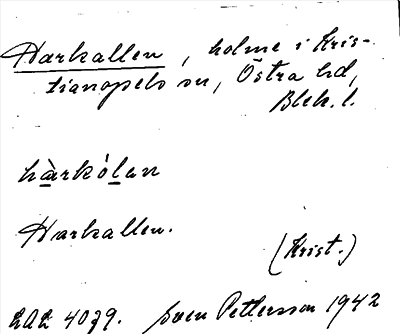 Harkallen, holme i Kris-
tianopels sn, Östra hd,
Blek. l.
hàrkólan
Harkallen.
(Krist.)
LAL 4079. Sven Pettersson 1942